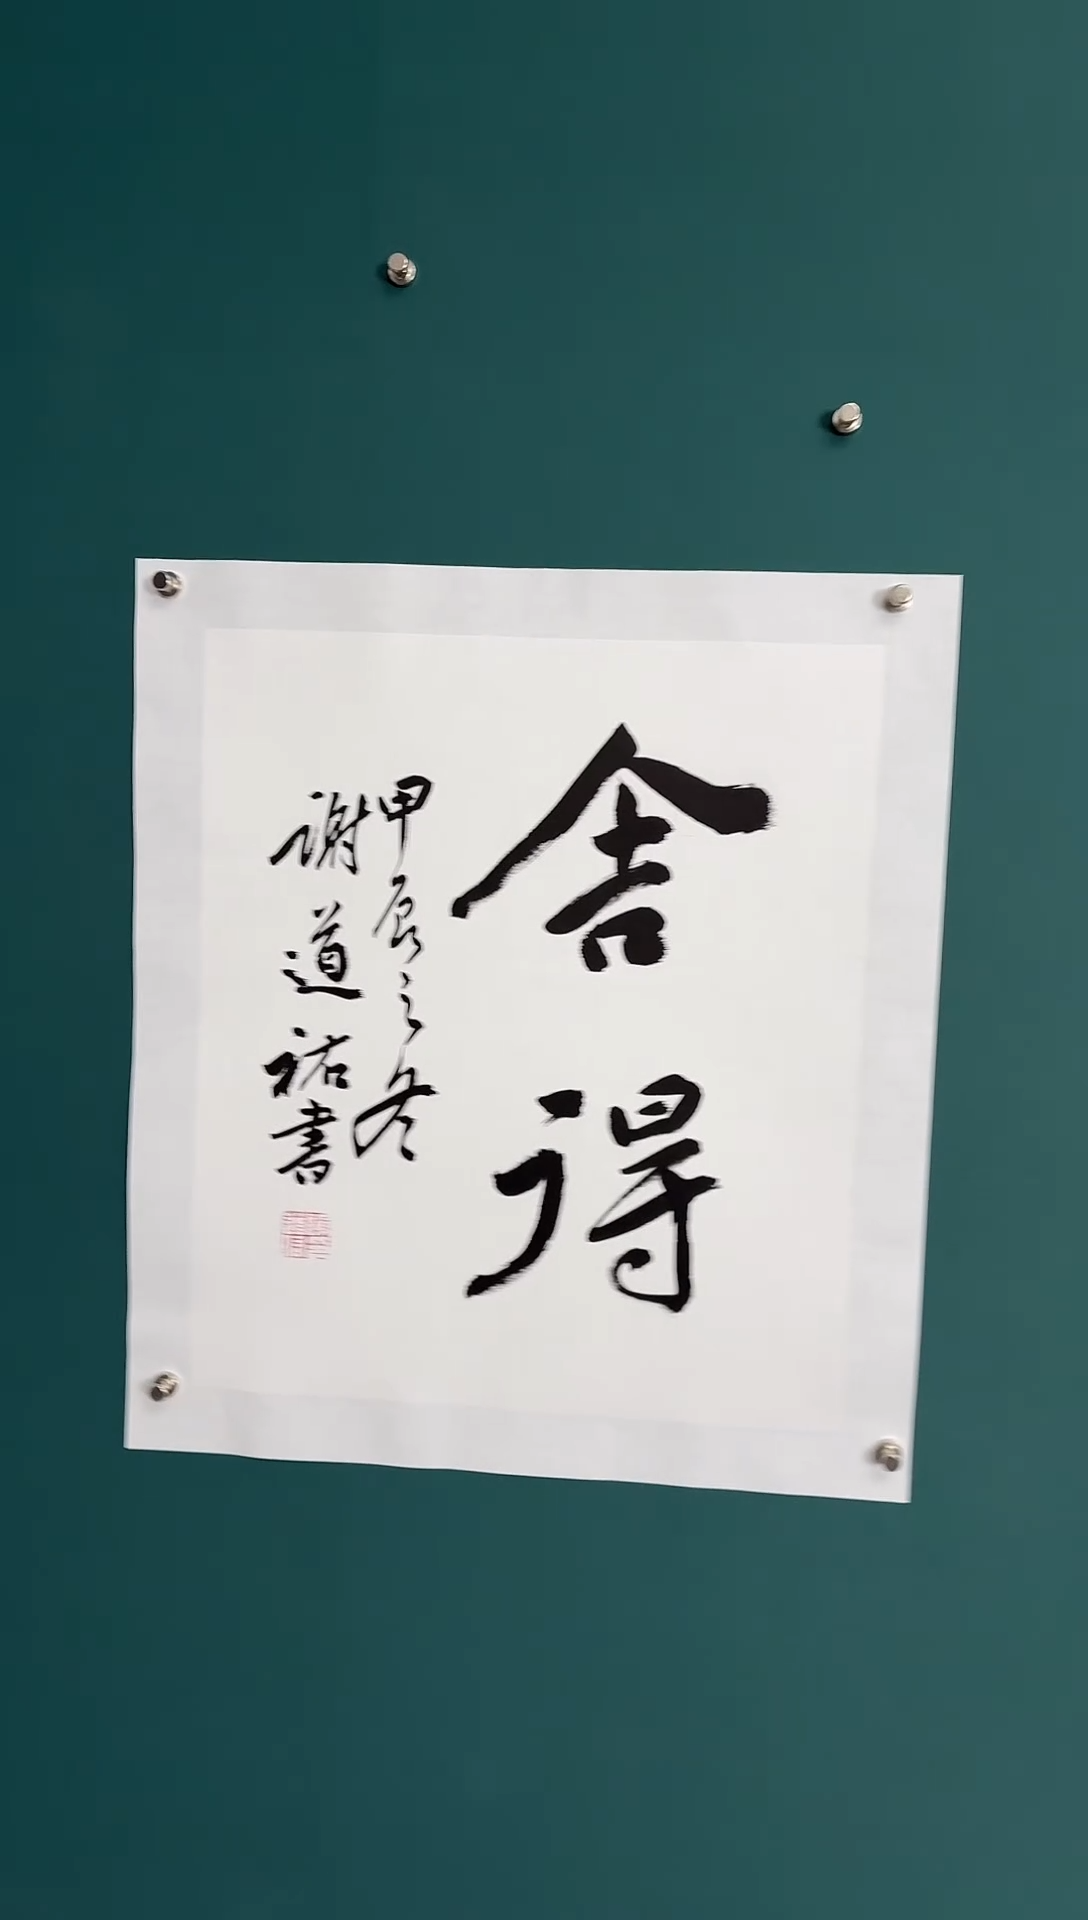 舍得
甲辰之冬
謝道祐書